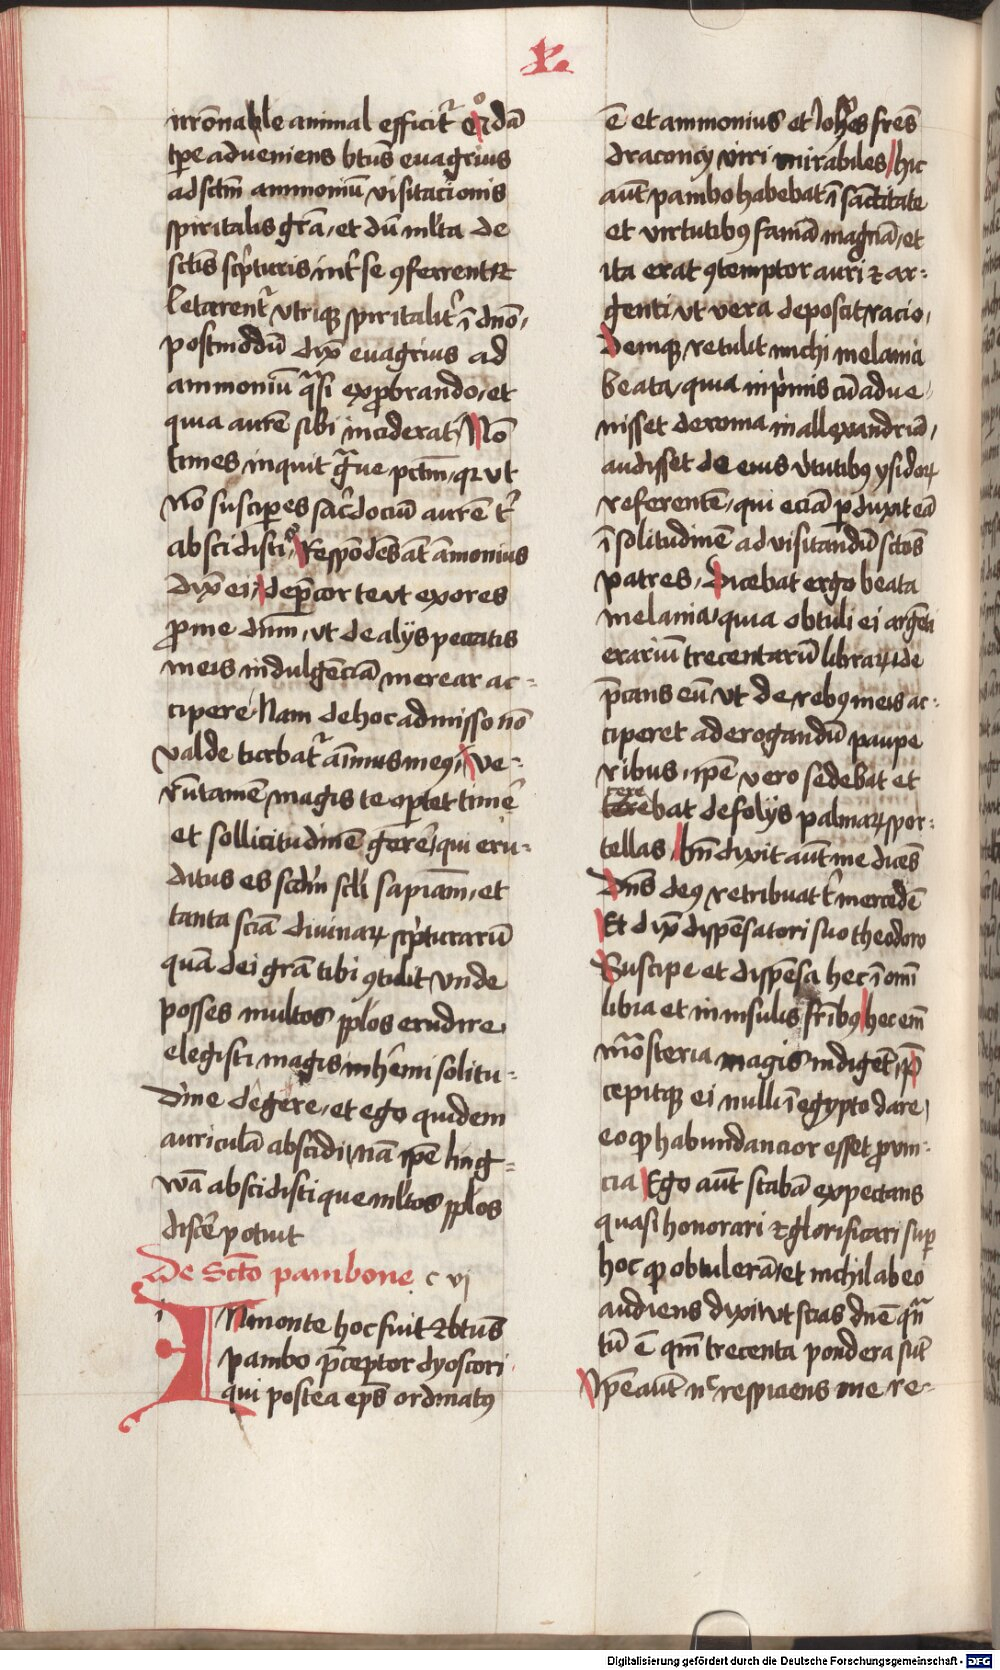 irrōnable animal efficit᷑ Quodā
tꝑe adveniens btūs euagrius
ad sctm̄ ammoniū visitacionis
spiritalis grā, et dū ml̄ta de
sctīs scp̄turis int̄ se ꝯferrent et
letarent᷑ vtriqꝫ spiritalit̄ ī dnō,
postmodū dix̄ euagrius ad
ammoniū q̄si exꝓbrando, et
quia aurē sibi inciderat, Nō
times inquit g̃ue pctm̄, qꝛ vt
nō susciperes sac̄dociū aurē t᷑
abscidisti, Respōdēs āt āmonius
dix̄ ei, dep̄cor te vt exores
ꝓ me dnm̄, vt de alijs peccatis
meis indulgēciā merear ac-
cipere Nam de hoc admisso nō
valde turbat᷑ aīmus meꝰ, Ve-
rūtamē magis te oꝑtet timē
et sollicitudinē gerē, qui eru-
ditus es scdm̄ scl̄i sapiam̄, et
tanta sciā diuinaꝝ scp̄turarū
quā dei grā tibi ꝯtulit vnde
posses multos ppl̄os erudire
elegisti magis in hēmi solitu-
dine degere, et ego quidem
auriculā abscidi, nā ip̄e ling-
wā abscidisti que ml̄tos ppl̄os
discē potuit
De Sctō pambone c vj
IN monte hoc fuit et btūs
pambo p̄ceptor dyoscori
qui postea ep̄s ordinatꝰ
ē et ammonius et Joh̄es fr̄es
draconcij viri mirabiles hic
aūt pambo habebat ī sāctitate
et virtutibꝰ famā magnā, et
ita erat ꝯtemptor auri et ar-
genti, vt vera deposcit racio,
Deniqꝫ retulit michi melania
beata, quia inp̄mis cū adue
nisset de roma in allexandriā,
audisset de eius v̄tutibꝰ ysidoꝝ
referentē, qui eciā ꝑduxit eā
ī solitudinē ad visitandū sctōs
patres, Dicebat ergo beata
melania, quia obtuli ei argēti
erariū trecentarū libraꝝ, de
p̄cans eū vt de rebꝰ meis ac-
ciperet ad erogandū paupe
ribus, ip̄e vero sedebat et
terebat de folijs palmaꝝ spor-
tellas, bn̄dixit aūt me dicēs
Dn̄s deꝰ retribuat t᷑ mercedē
Et dix̄ dispēsatori suo theodoro
Suscipe et dispēsa hec ī omī
libia et in insulis fr̄ibꝰ hec em̄
mōsteria magis indigēt, p̄
cepitqꝫ ei nulli ī egypto dare,
eo qꝫ habundancior esset ꝓuin-
cia Ego aūt stabā expectans
quasi honorari et glorificari suꝑ
hoc qꝫ obtulerā, et nichil ab eo
audiens dixi vt scias dnē q̄n
tū ē qm̄ trecenta pondera sūt
Ip̄e aūt nͨ respiciens me re-